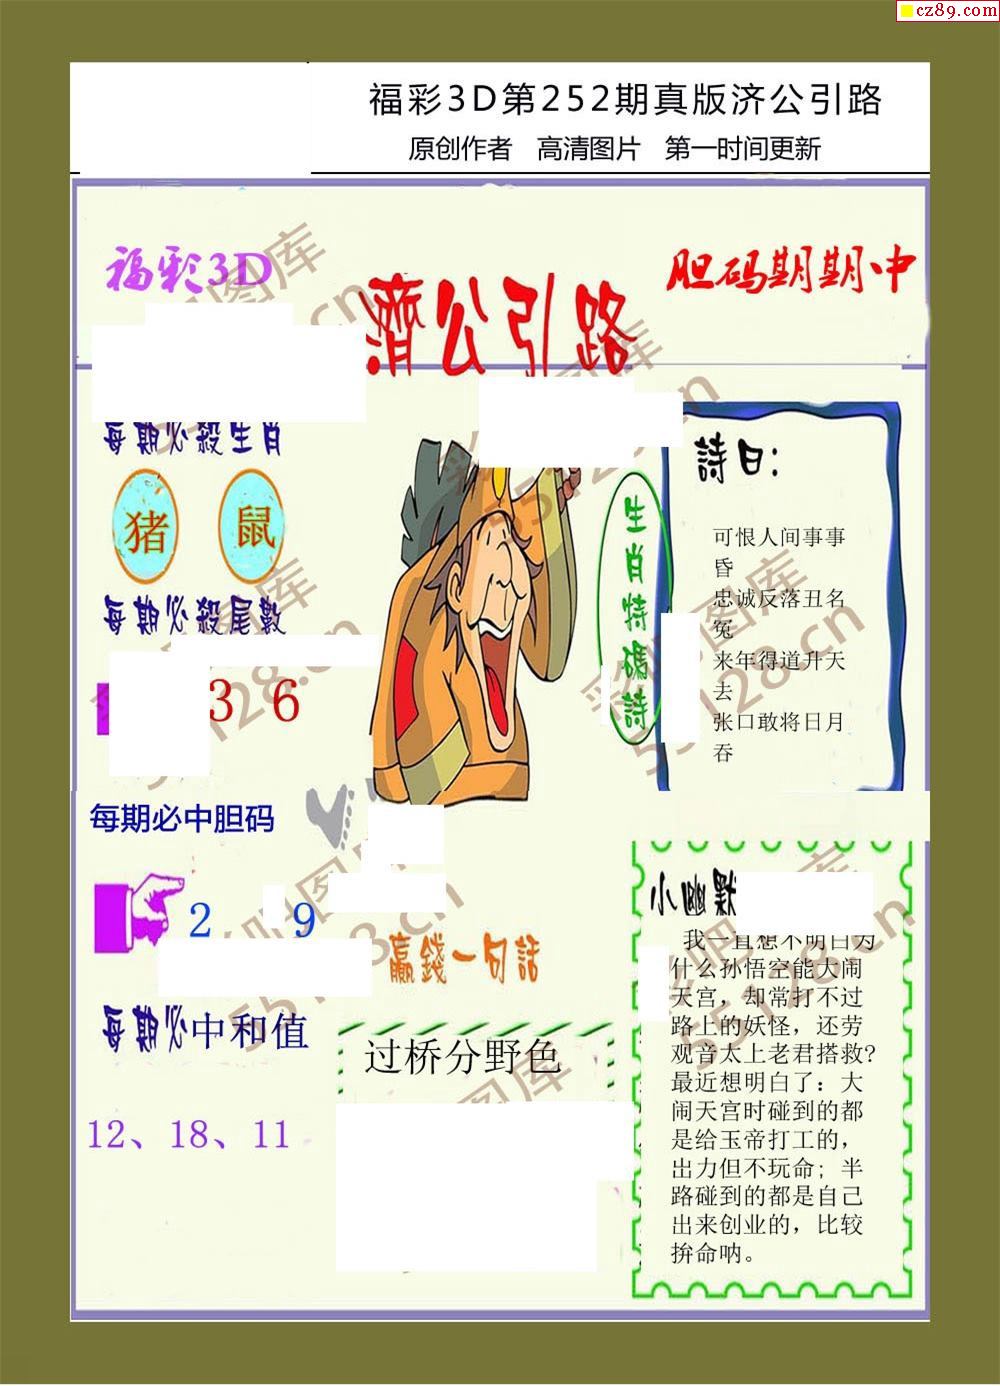 cz89.com
福彩3D第252期真版济公引路
原创作者 高清图片 第一时间更新
福彩3D
濟公引路
胆码期期中
每期必殺生肖
猪 鼠
每期必殺尾數
3 6
每期必中胆码
2 9
每期必中和值
12、18、11
生肖特碼詩
詩曰：
可恨人间事事
昏
忠诚反落丑名
冤
来年得道升天
去
张口敢将日月
吞
赢錢一句話
过桥分野色
小幽默
我一直想不明白为
什么孙悟空能大闹
天宫，却常打不过
路上的妖怪，还劳
观音太上老君搭救?
最近想明白了：大
闹天宫时碰到的都
是给玉帝打工的，
出力但不玩命；半
路碰到的都是自己
出来创业的，比较
拚命呐。
55128.cn